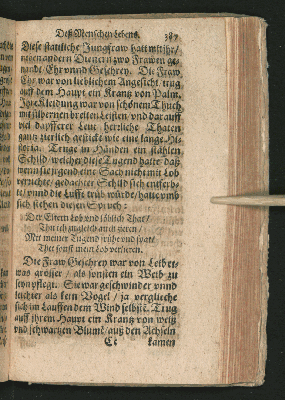 Deß Menschen Lebens. 387
Diese stattliche Jungfraw hatt mit ihr/
neben andern Dienern zwo Frawen ge-
nandt Ehr vnnd Geschrey. Die Fraw
Ehr war von lieblichem Angesicht/ trug
auff dem Haupt ein Krantz von Palm.
Ihre Kleidung war von schönem Thuch
mit silbernen breiten Leisten/ vnd darauff
viel dapfferer Leut herrliche Thaten
gantz zierlich gestickt wie eine lange Hi-
storia. Truge in Händen ein stählen
Schild/ welcher diese Tugend hatte/ daß
wenn sie jrgend eine Sach nicht mit Lob
verrichte/ gedachter Schild sich entferb-
te/ vnnd die Lufft trüb würde/ hatte vmb
sich stehen diesen Spruch:
Der Eltern Lob vnd löblich That/
Thu ich zugleich auch zieren/
Mit meiner Tugend frühe vnd spat/
Thet sonst mein Lob verlieren.
Die Fraw Geschrey war von Leib et-
was grösser/ als sonsten ein Weib zu
seyn pflegt. Sie war geschwinder vnnd
leichter als kein Vogel/ ja vergliche
sich im Lauffen dem Wind selbst. Trug
auff ihrem Haupt ein Krantz von weiß
vnd schwartzen Blumē/ auß den Achseln
Cc kamen